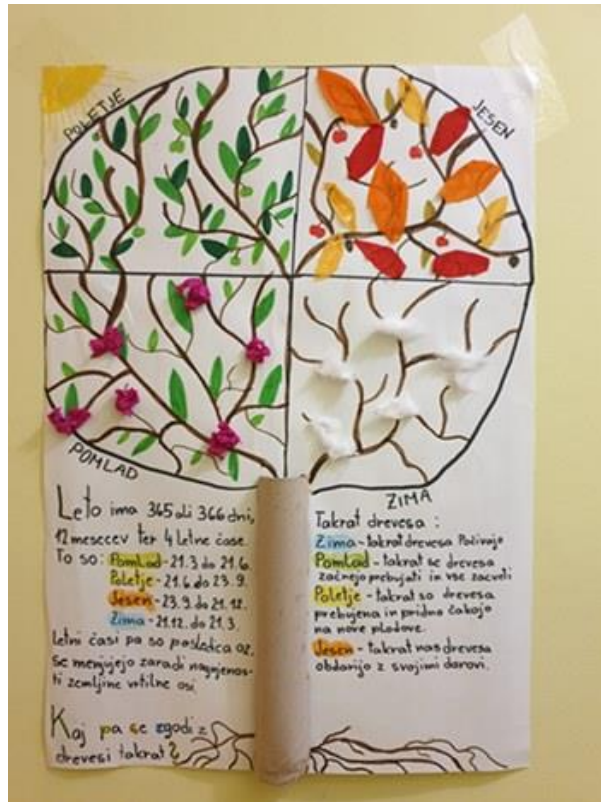 POLETJE
JESEN
POMLAD
ZIMA
Leto ima 365 ali 366 dni,
12 mesecev ter 4 letne čase.
To so: Pomlad - 21.3 do 21.6.
Poletje - 21.6 do 23.9.
Jesen - 23.9. do 21.12.
Zima - 21.12. do 21.3.
Letni časi pa so posledica oz.
se menjujejo zaradi nagnjenos-
ti zemljine vrtilne osi.
Kaj pa se zgodi z
drevesi takrat?
Takrat drevesa :
Zima - takrat drevesa Počivajo
Pomlad - takrat se drevesa
začnejo prebujati in vse zacveti
Poletje - takrat so drevesa
prebujena in pridno čakajo
na nove plodove.
Jesen - takrat nas drevesa
obdarijo z svojimi darovi.